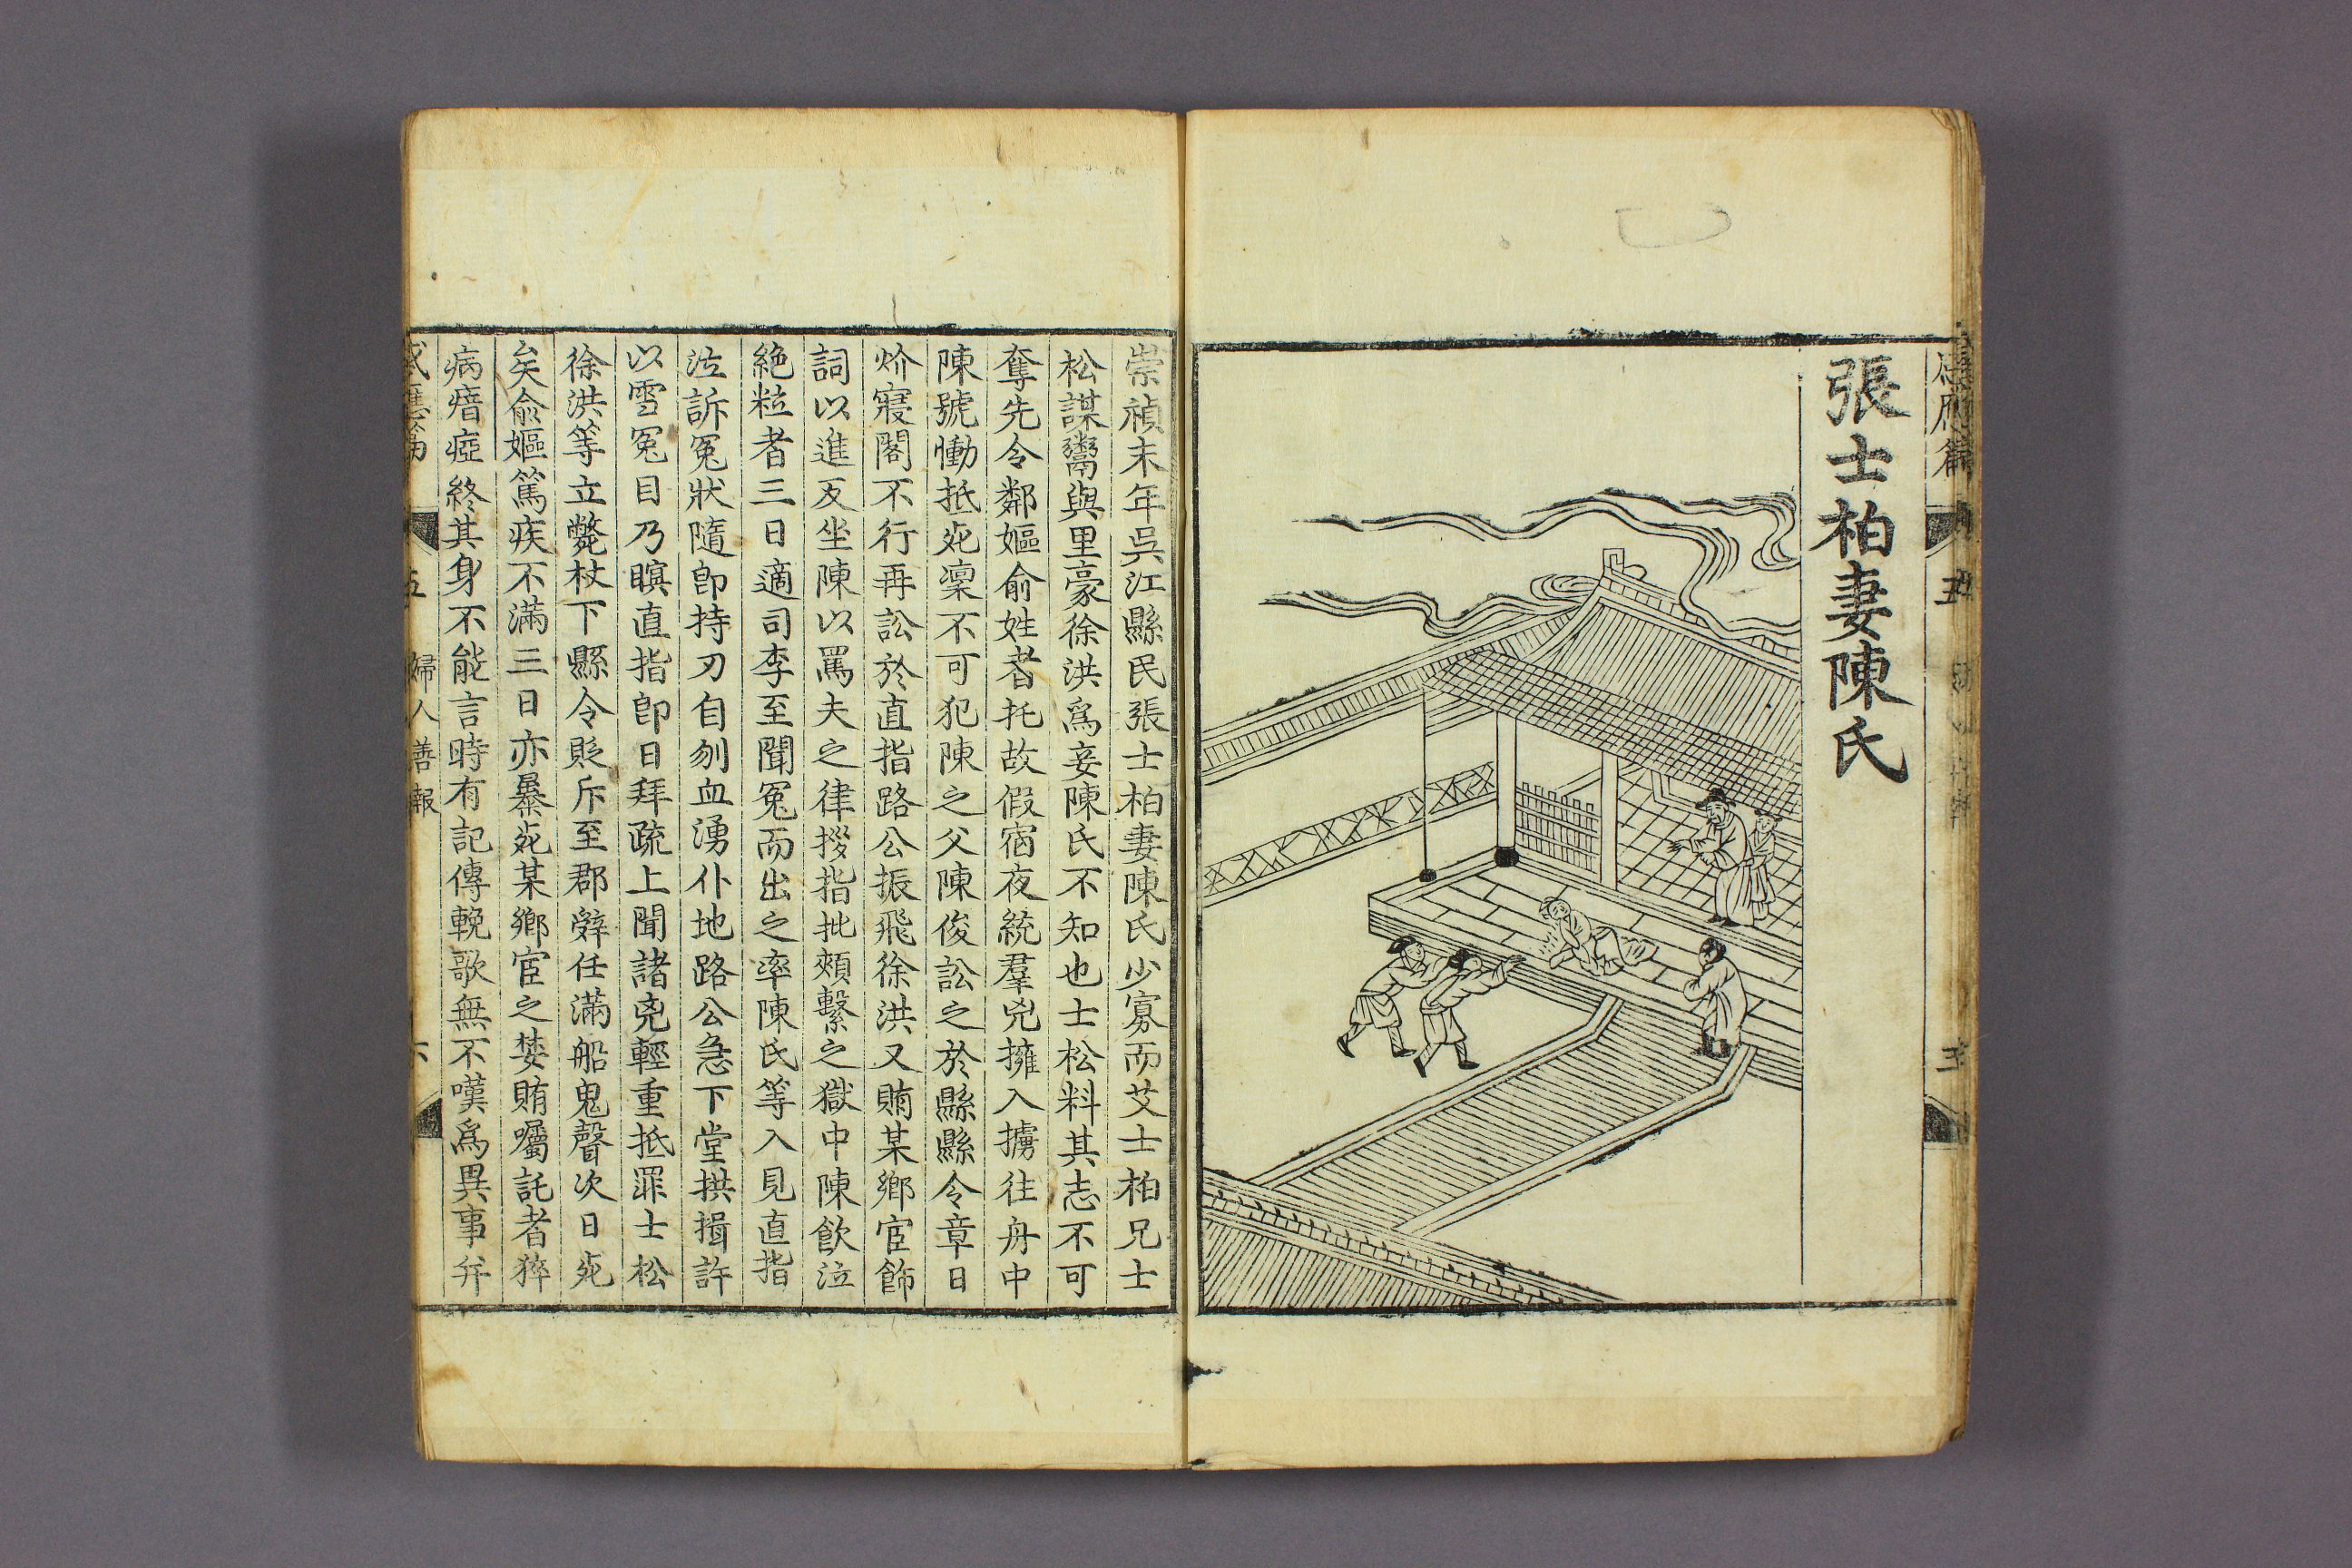 張士柏妻陳氏
崇禎末年吳江縣民張士柏妻陳氏少寡而艾士柏兄士
松謀鬻與里豪徐洪爲妾陳氏不知也士松料其志不可
奪先令鄰嫗俞姓者托故假宿夜統羣兇擁入擄往舟中
陳號慟抵死凜不可犯陳之父陳俊訟之於縣縣令章日
炌寢閣不行再訟於直指路公振飛徐洪又賄某鄉宦飾
詞以進反坐陳以罵夫之律拶指批頰繫之獄中陳飲泣
絶粒者三日適司李至聞冤而出之率陳氏等入見直指
泣訴冤狀隨卽持刃自刎血湧仆地路公急下堂拱揖許
以雪冤目乃瞑直指卽日拜疏上聞諸兇輕重抵罪士松
徐洪等立斃杖下縣令貶斥至郡辭任滿船鬼聲次日死
矣俞嫗篤疾不滿三日亦暴死某鄉宦之婪賄囑託者猝
病瘖瘂終其身不能言時有記傳輓歌無不嘆爲異事幷
感應篇 五 婦人善報 六